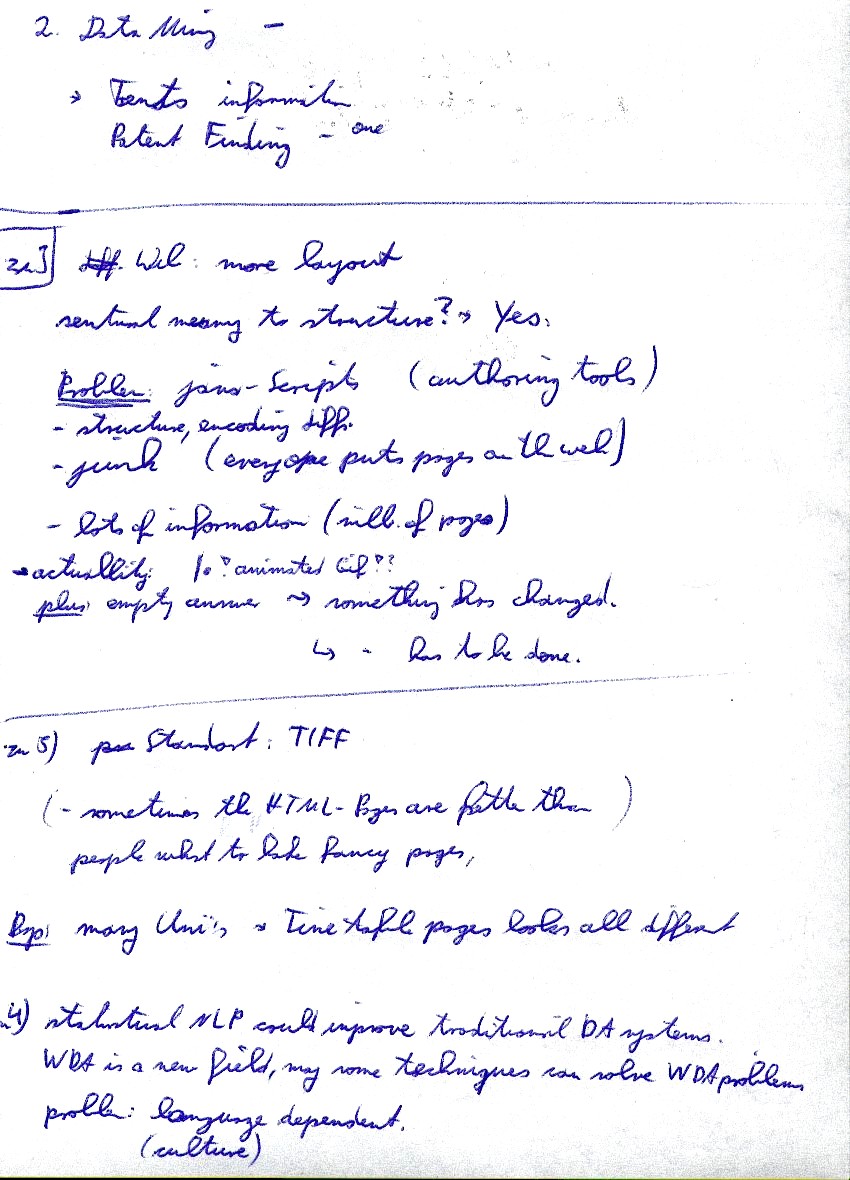 2. Data Mining -
→ Trends information
Patent Finding - one
zu 3] Web: more layout
meaning to structure? → Yes.
Problem: java-Scripts (authoring tools)
- structure, encoding diff.
- junk (everyone puts pages on th web)
- lots of information (mill. of pages)
- actuallity: "animated Gif"??
plus: empty answer ~> something has changed.
↳ - has to be done.
zu 5) Standart: TIFF
(- sometimes the HTML-Pages are than )
people to fancy pages,
Bsp: many Uni's → Time table pages looks all different
zu 4) statistical NLP could improve traditional DA systems.
WDA is a new field, may some techniques can solve WDA problems
problem: language dependent.
(culture)